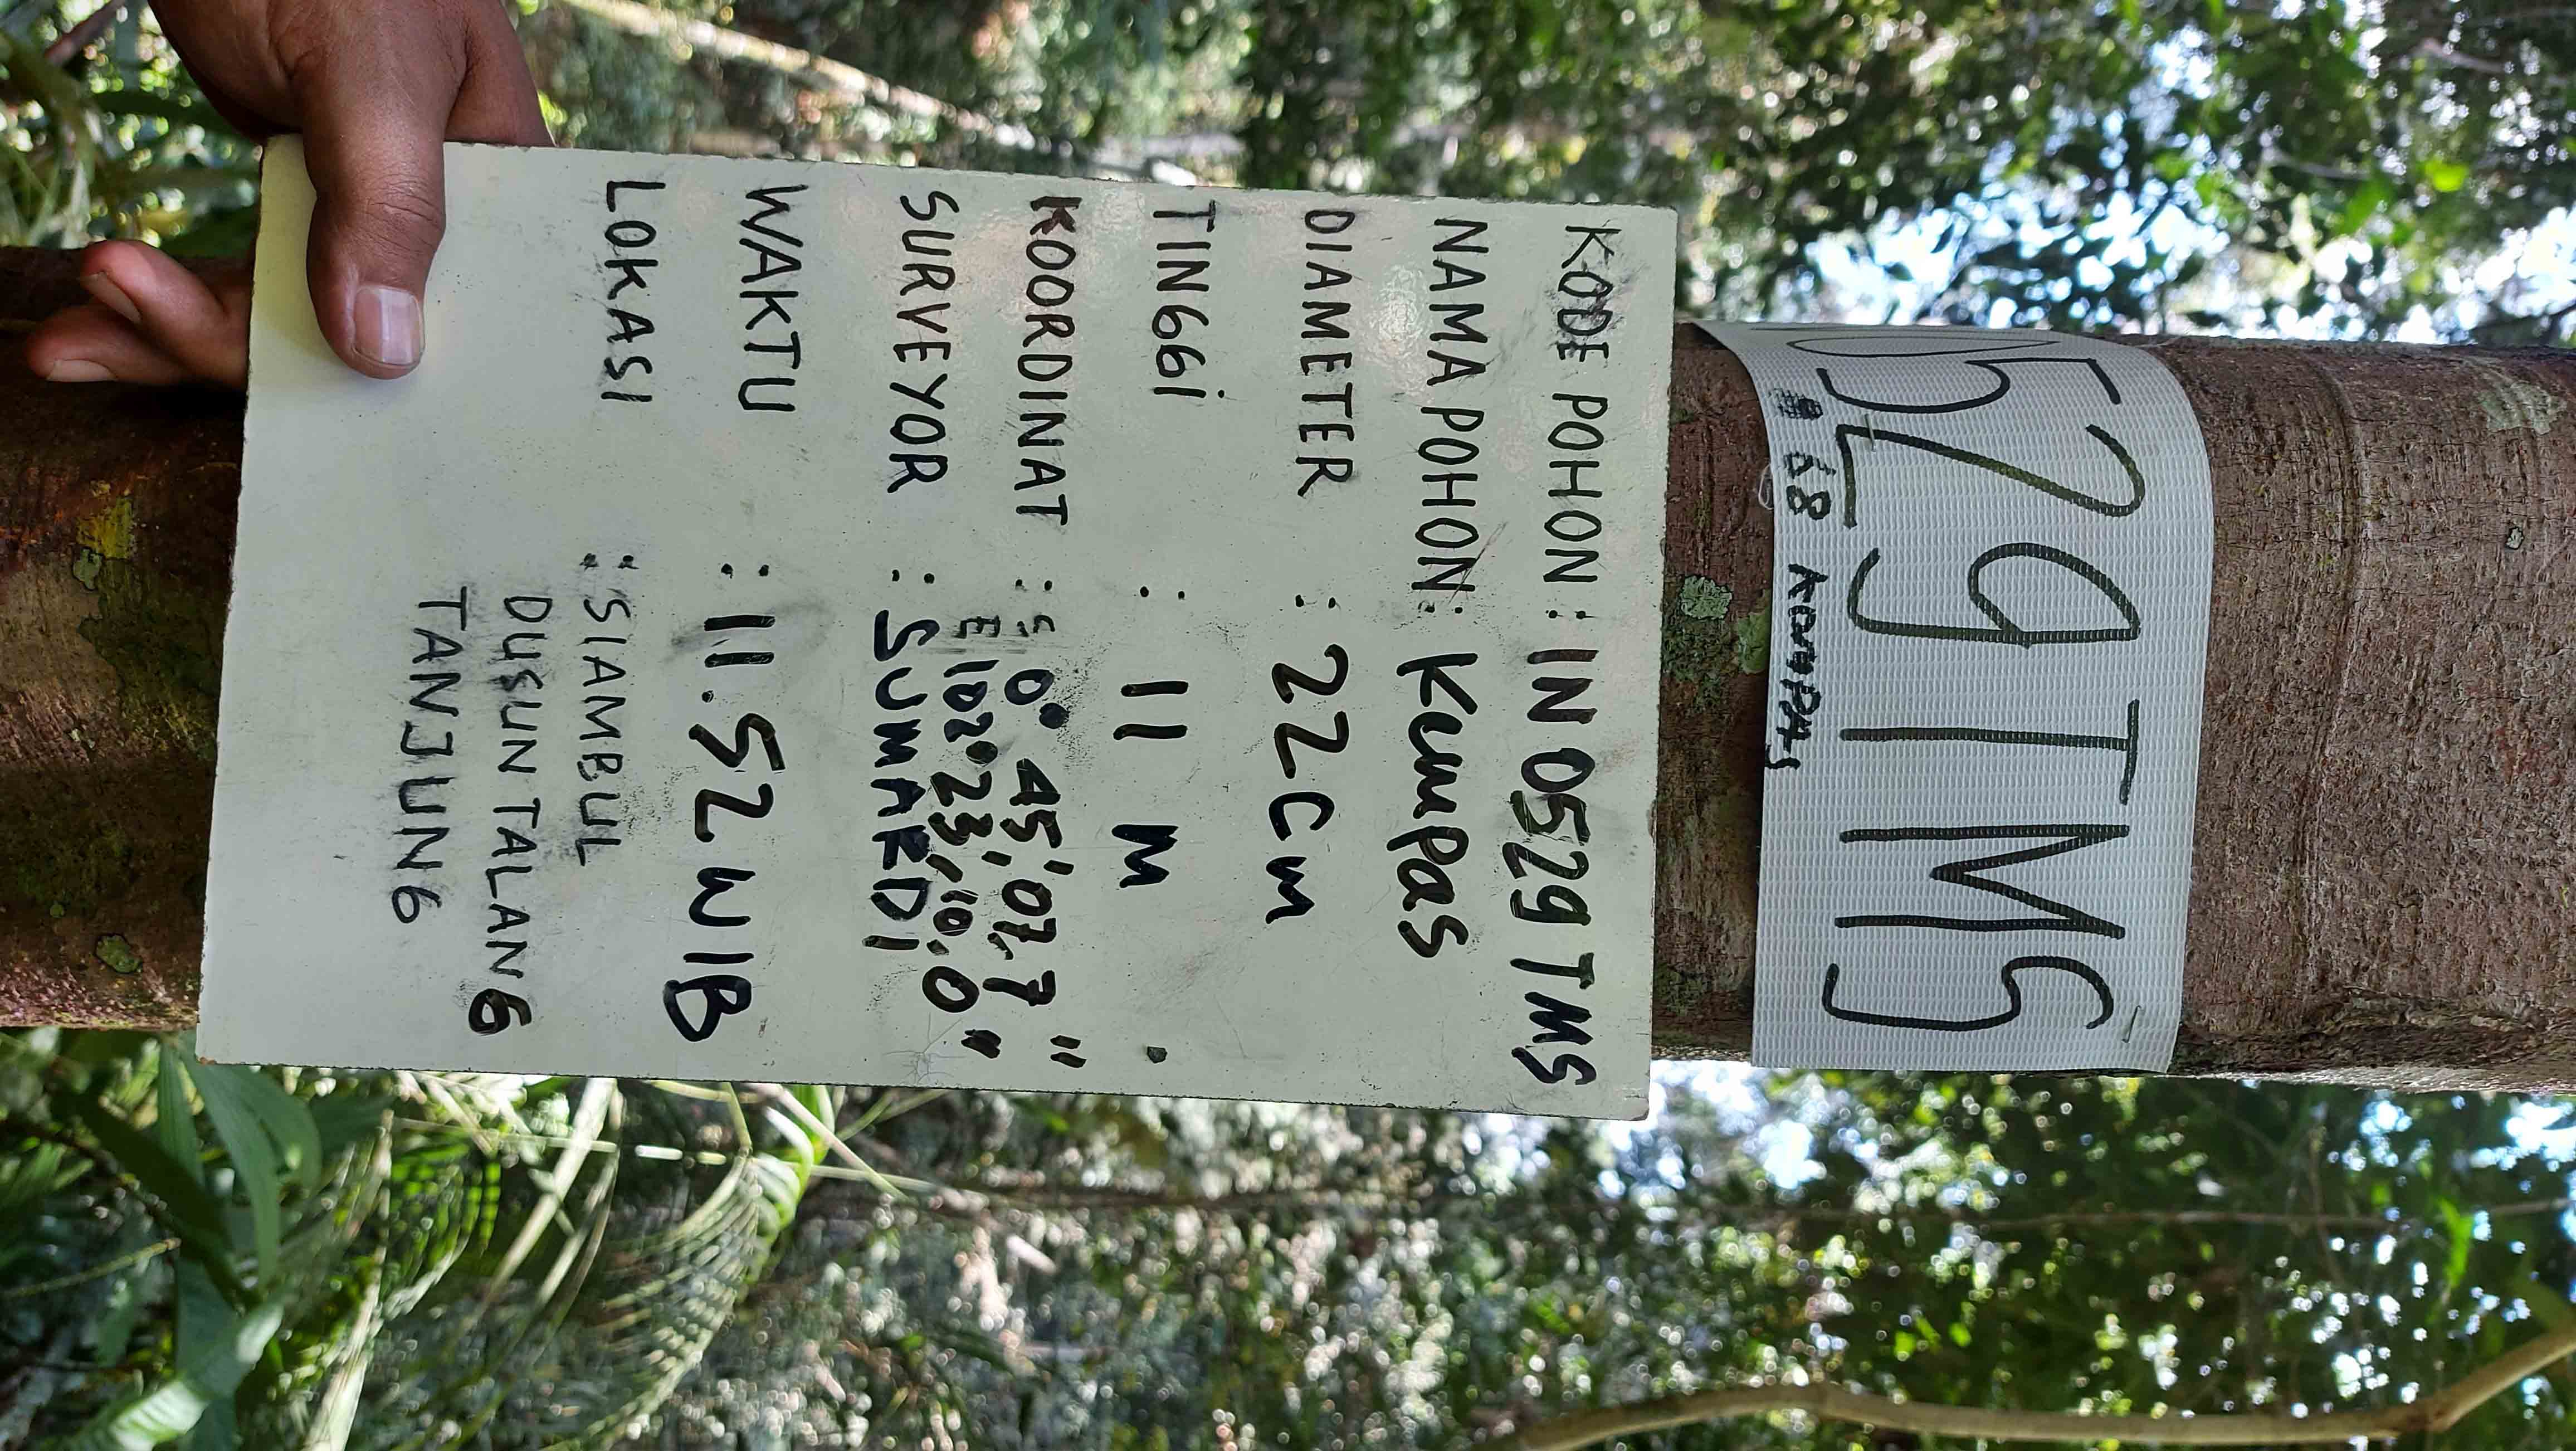 0529 TMS
# 68 KOMPAS
KODE POHON : IN 0529 TMS
NAMA POHON : Kempas
DIAMETER : 22 Cm
TINGGi : 11 M
KOORDINAT : S 0° 45', 07,7"
E 102° 23', 10.0"
SURVEYOR : SUMARDI
WAKTU : 11.52 WIB
LOKASI : SIAMBUL
DUSUN TALANG
TANJUNG